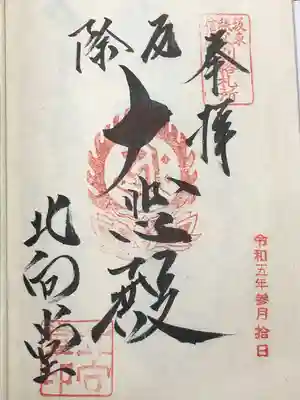 奉拝
厄除
大悲殿
北向堂
令和五年参月拾日